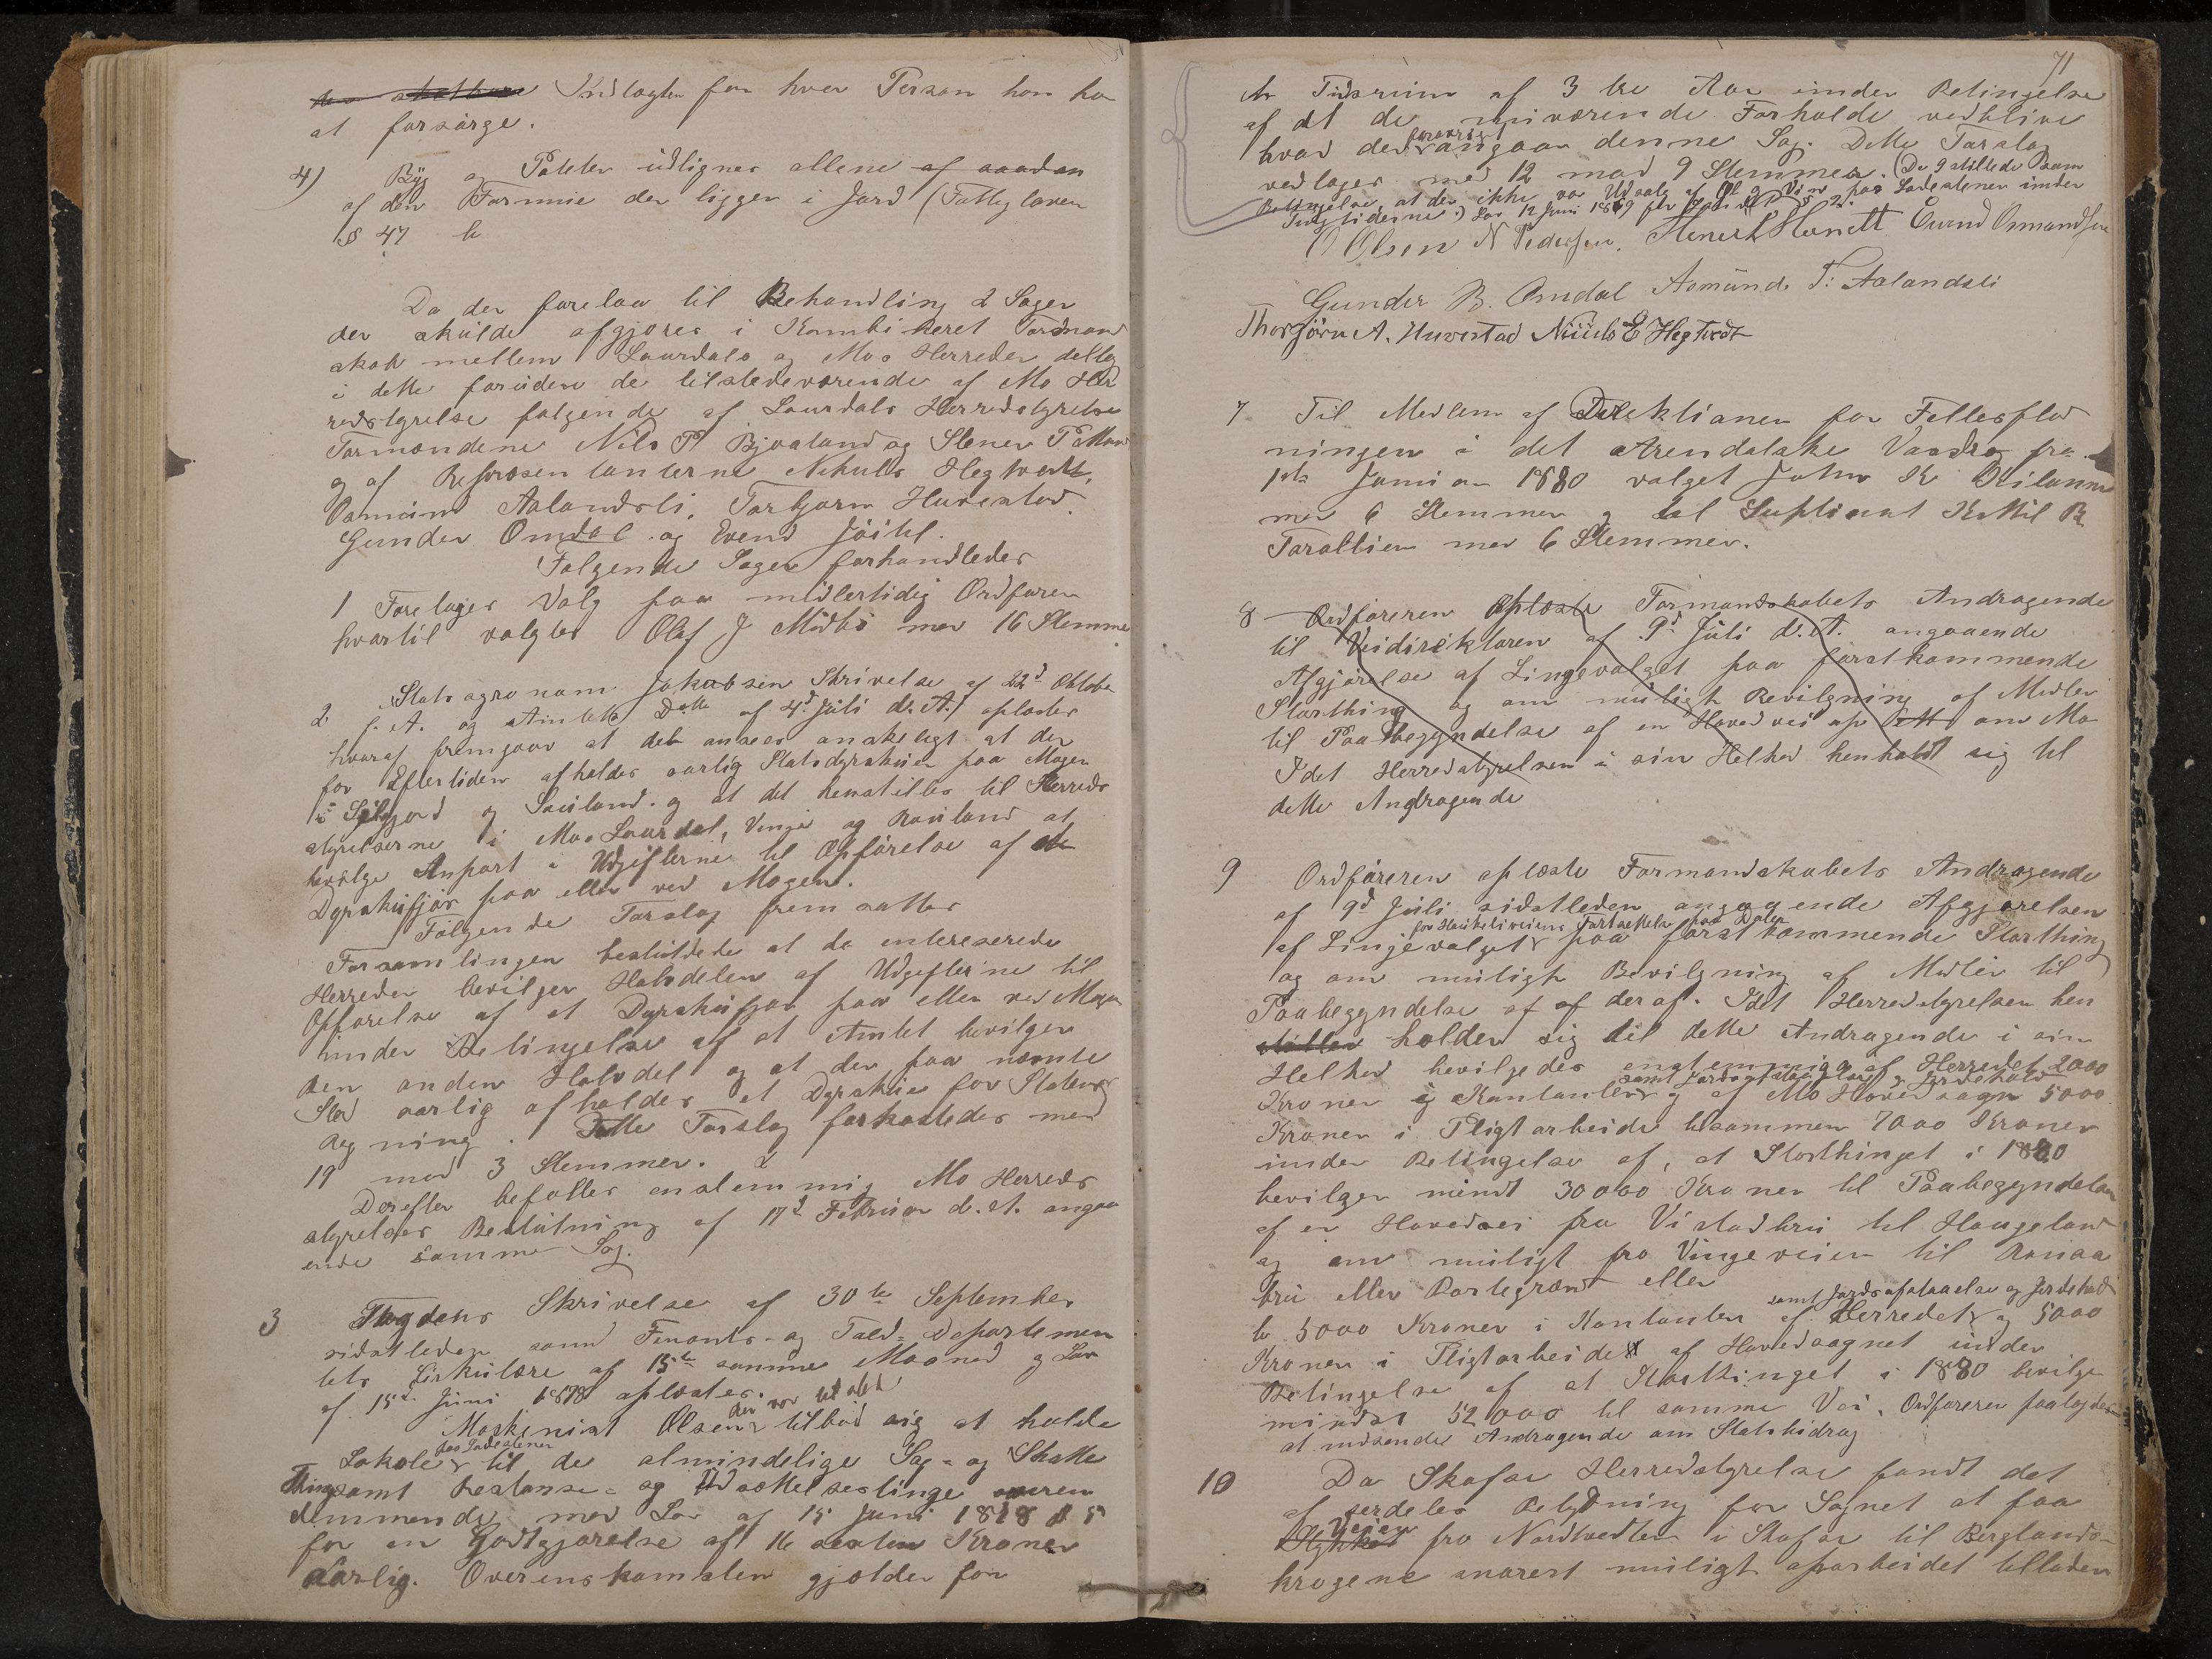 Indtægten for hver Person han har
at forsörge.
4) Byg og Poteter udlignes allene af saadan
af den Formue der ligger i Jord (Fattigloven
§ 47 b
Da der forelaa til Behandling 2 Sager
der skulde afgjöres i Kombineret Formand
skab mellem Laurdals og Mos Herreder deltog
i dette foruden de tilstedeværende af Mo Her
redstyrelse folgende af Laurdals Herredstyrelse
Formændene Nils P Bjoaland og Stener
og af Repræsentanterne Nikuls Hegtvedt,
Aasmund Aalandsli, Torbjorn Huvestad
Gunder Omdal og Evend
Folgende Sager forhandledes
1 Foretages Valg paa midlertidig Ordförer
hvortil valgtes Olaf J Midbö med 16 Stemmer
2 Statsagronom Jakobsen Skrivelse af 22d Oktober
f. A. og Amtets Dato af 4d Juli d. A. oplæstes
hvoraf fremgaar at det ansees önskeligt at der
for Eftertiden afholdes aarlig Statsdyrskuer paa Mogen
i Siljord og Sauland og at det henstilles til Herreds
styrelserne i Mo, Laurdal, Vinje og Rauland at
bevilge Anpart i Udgifterne til Opförelse af et
Dyrskufjös paa eller ved Mogen.
Fölgende Forslag fremsattes
Forsamlingen besluttede at de interesserede
Herreder bevilger Halvdelen af Udgifterne til
Opförelse af et Dyrskufjös paa eller ved Mogen
under Betingelse af at Amtet bevilger
den anden Halvdel og at der paa nævnte
Sted aarlig afholdes et Dyrskue for Statens
Regning. Dette Forslag forkastedes med
19 mod 3 Stemmer.
Derefter enstemmig Mo Herreds
styrelses Beslutning af 17d Februar d. A. angaa
ende samme Sag.
3 Fogdens Skrivelse af 30te September
sidstleden samt Finants- og Told-Departemen
tets Sirkulære af 15te samme Maaned og Lov
af 15de Juni 1878 oplæstes.
der var tilsted
Maskinist Olsen tilböd sig at holde
paa Ladestenen
Lokale til de almindelige Sag- og Skatte
Thing samt Restanse- og Udsættelsestinge overen
stemmende med Lov af 15 Juni 1878 § 5
for en Godtgjörelse af 16 sexten Kroner
aarlig. Overenskomsten gjælder for
71
et Tidsrum af 3 tre Aar under Betingelse
af at de nuværende Forholde vedblive
forövrigt
hvad der angaar denne Sag. Dette Forslag
vedtoges med 12 mod 9 Stemmer. (De 9 stillede som
Betingelse, at der ikke var Udsalg af Öl og Vin paa Ladestenen under
Tingtiderne.) Lov 12 Juni 1869
O Olsen N Pedersen. Eivind Osmundsen
Gunder B. Omdal Asmund T: Aalandsli
Thorbjörn A. Huvestad Nikuls E Hegtvedt
7 Til Medlem af Direktionen for Fellesflöd
ningen i det Arendalske Vasdrag fra
1ste Januar 1880 valgtes John K
med 6 Stemmer og til Supliant Kittil B
med 6 Stemmer.
8 Ordföreren oplæste Formandskabets Andragende
til Veidirektoren af 9d Juli d. A. angaaende
Afgjörelse af Linjevalget paa förstkommende
Storthing og om muligt Bevilgning af Midler
til Paabegyndelse af en Hovedvei op om Mo
Idet Herredstyrelsen i sin Helhed henholdt sig til
dette Andragende
9 Ordföreren oplæste Formandskabets Andragende
af 9d Juli sidstleden angaaende Afgjörelsen
for Haukeliveiens Fortsettelse fra Dalen
af Linjevalget paa först kommende Storthing
og om muligt Bevilgning af Midler til
Paabegyndelse af deraf. Idet Herredstyrelsen hen
stiller holder sig til dette Andragende i sin
Helhed bevilgedes enstemmig af Herredet 2000
samt Jordafstaaelse og Jordehold
Kroner i Kontanter og af Mo Hovedsogn 5000
Kroner i Pligtarbeide tilsammen 7000 Kroner
under Betingelse af, at Storthinget i 1880
bevilger mindst 30000 Kroner til Paabegyndelse
af en Hovedvei fra Vistadbru til Haugeland
og om muligt fra Vinjeveien til
bru eller Bortegrænd eller
samt Jordsafstaaelse og Jordehold
b 5000 Kroner i Kontanter af Herredet og 5000
Kroner i Pligtarbeide af Hovedsognet under
Betingelse af at Storthinget i 1880 bevilger
mindst 52000 til samme Vei. Ordföreren paalagdes
at indsende Andragende om Statsbidrag
10 Da Skafse Herredstyrelse fandt det
af serdeles Betydning for Sognet at faa
Veien
Stykket fra Nordbedten i Skafse til Berglands-
krogene snarest muligt oparbeidet tillader